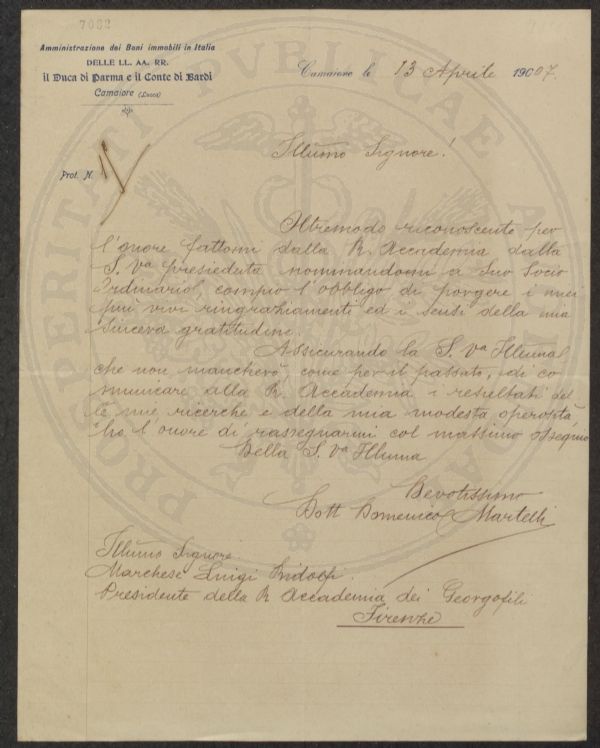 7092
Amministrazione dei Beni immobili in Italia
DELLE LL. AA. RR.
il Duca di Parma e il Conte di Bardi
Camaiore (Lucca)
Camaiore le 13 Aprile 19007.
Prot. N.
Illumo Signore!
Oltremodo riconoscente per
l'onore fattomi dalla R. Accademia dalla
S. Va presieduta nominandomi a Suo Socio
Ordinario, compio l'obbligo di porgere i miei
più vivi ringraziamenti ed i sensi della mia
sincera gratitudine.
Assicurando la S. Va Illuma
che non mancherò, come per il passato, di co
municare alla R. Accademia i resultati del
le mie ricerche e della mia modesta operosità
ho l'onore di rassegnarmi col massimo ossequio
Della S. Va Illuma
Devotissimo
Dott Domenico Martelli
Illumo Signore
Marchese Luigi Ridolfi
Presidente della R Accademia dei Georgofili
Firenze
PROSPERITATI PVBLICAE